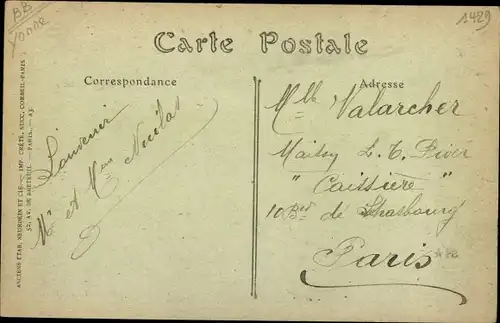 BB
Yonne
1429
Carte Postale
Correspondance
Adresse
Souvenir
Mr et Mme Nicolas
Mlle Valarcher
L. T. Piver
" Caissière "
10 Bd de Strasbourg
Paris
ANCIENS ETAB. NEURDEIN ET CIE. — IMP. CRÉTÉ, SUCC. CORBEIL-PARIS
52, AV. DE BRETEUIL — PARIS.